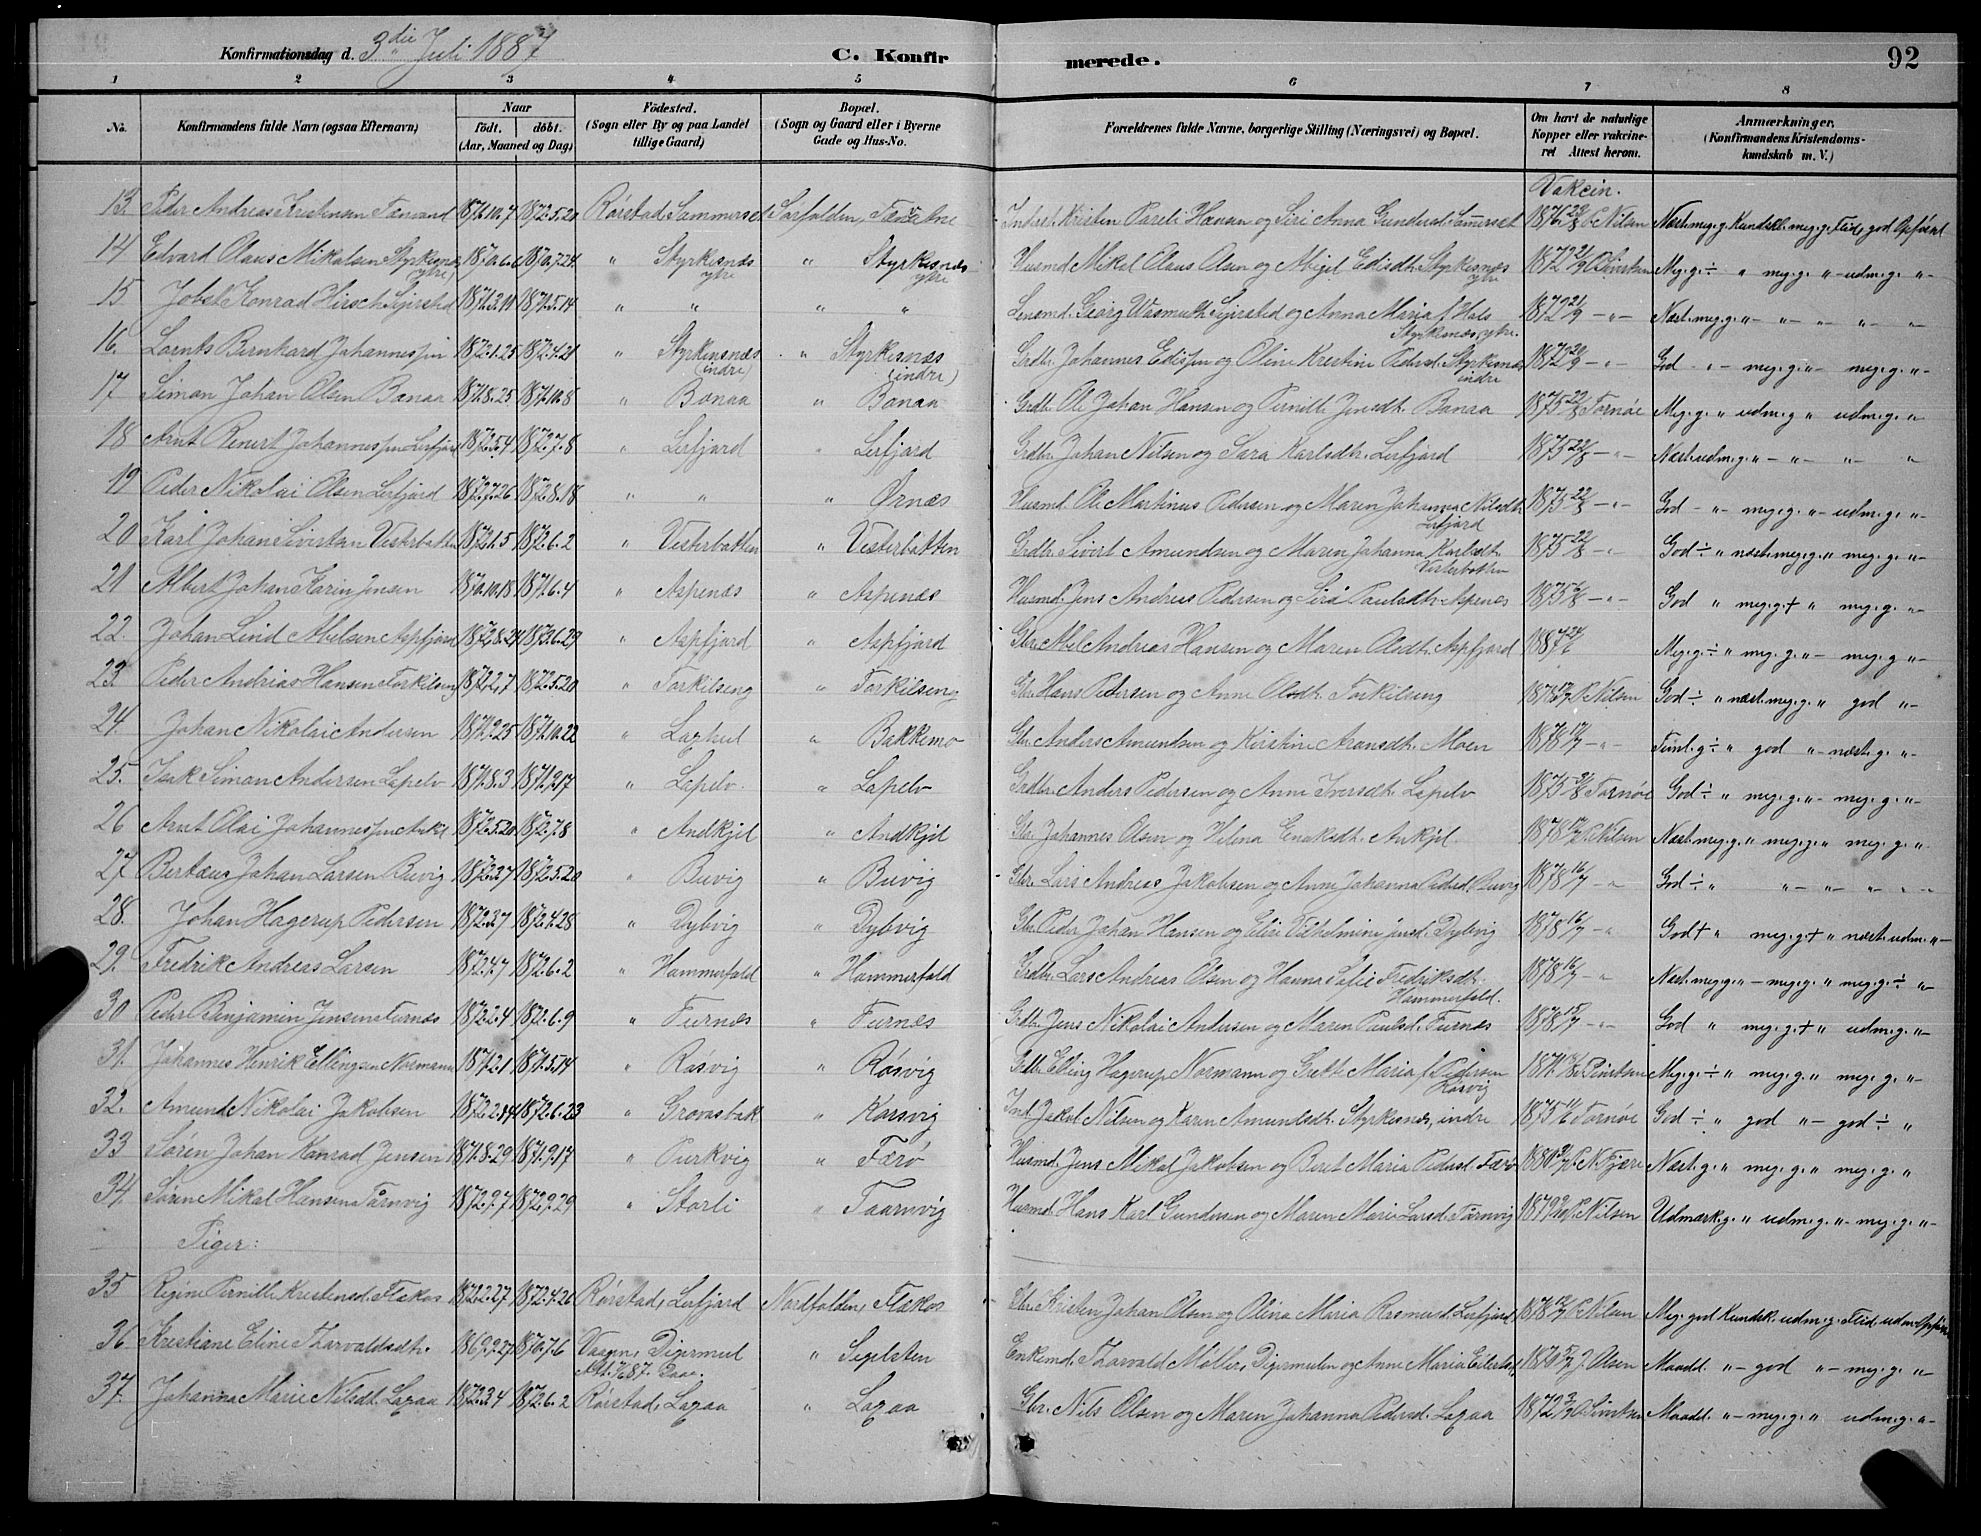 Konfirmationsdag d. 3die Juli 1887 C. Konfirmerede. 92
1 2 3 4 5 6 7 8
No. Konfirmandens fulde Navn (ogsaa Efternavn) Naar födt. döbt. (Aar, Maaned og Dag) Födested. (Sogn eller By og paa Landet tillige Gaard) Bopæl. (Sogn og Gaard eller i Byerne Gade og Hus-No. Forældrenes fulde Navne, borgerlige Stilling (Næringsvei) og Bopæl. Om havt de naturlige Kopper eller vakcineret Attest herom. Anmærkninger. (Konfirmandens Kristendomskundskab m.V.)
Vakcin.
13. Peder Andreas Kristensen 1871.10.7 1872.5.20 Rörstad, Sommerset Sørfolden, Kristen Pareli Hansen og Siri Anna Gundersd. Sommerset 1876 P. Nilsen Næst.meg.g. Kundsk. meg.g. Flid, god Opførsel
14 Edvard Olaus Mikalsen Styrkesnæs ytre 1870.6.6 1870.7.24 " Styrkesnæs ytre " Styrkesnæs ytre Husmd. Mikal Olaus Olsen og Abigel Edisdtr. Styrkesnæs ytre 1872 21/9 Sivertsen Meg.g ÷ " meg.g. "- udm.g. "-
15 Jobst Konrad Hirsch Sejersted 1871.3.11 1871.5.14 " " " " Lensmd. Georg Wasmuth Sejersted og Anna Maria f. Hals Styrkesnæs, ytre. 1872 21/9 -"- Næst.meg.g "- "- "- "- "-
16. Lornts Bernhard Johannessen 1872.1.25 1872.4.21 " Styrkesnæs (indre) " Styrkesnæs (indre) Grdbr. Johannes Edissen og Oline Kristine Pedersd. Styrkesnæs indre 1872 20/9 -"- God -"- meg.g. "- meg.g. "-
17 Simon Johan Olsen Bonaa 1871.8.25 1871.10.8 " Bonaa " Bonaa Grdbr. Ole Johan Hansen og Pernille Jensdtr. Bonaa 1875 22/8 Tornøe Meg.g. " udm.g " udm.g. "-
18 Arnt Renert Johannessen Leifjord 1872.5.4 1872.7.8 " Leifjord " Leifjord Grdbr. Johan Nilsen og Sara Karlsdtr. Leifjord 1875 22/8 -"- Næst.udm.g. "- "- "- "
19 Peder Nikolai Olsen Leifjord 1872.7.26 1872.8.18 " " " Ørnæs Husmd. Ole Martinus Pedersen og Maren Johanna Nilsdtr. Leifjord 1875 22/8 -"- God -"- meg.g. "- udm.g. "-
20 Karl Johan Sivertsen Vesterbotten 1872.1.5 1872.6.2 " Vesterbotten " Vesterbotten Grdbr. Sivert Amundsen og Maren Johanna Karlsdt. Vesterbotten 1875 22/8 -"- God ÷ " næst.meg.g. " meg.g. "-
21 Albert Johan Jensen 1870.10.18 1871.6.4 " Aspenæs " Aspenæs Husmd. Jens Andreas Pedersen og Siri Paulsdtr. Aspenæs 1875 -"- God " meg.g.+ " meg.g. "-
22. Johan Lind Abelsen Aspfjord 1872.8.24 1873.6.29 " Aspfjord " Aspfjord Gbr. Abel Andreas Hansen og Maren Olsdt. Aspfjord 1887 24/6 Meg.g ÷ " meg.g. "- meg.g. "-
23. Peder Andreas Hansen Torkilseng 1872.2.7 1872.5.20 " Torkilseng " Torkilseng Gbr. Hans Pedersen og Anne Olsdtr. Torkilseng 1878 17/7 P. Nilsen God ÷ " næst.meg.g. " god "-
24. Johan Nikolai Andersen 1871.9.25 1871.10.22 " Laghul " Bakkemo Gbr. Anders Amundsen og Kirstine Aronsdt. Moen 1878 17/7 -"- Teml.g ÷ " god "- næst.g. "-
25. Isak Simon Andersen Lapelv 1871.8.3 1871.9.17 " Lapelv. " Lapelv Grdbr. Anders Pedersen og Anne Iversdt. Lapelv 1875 Tornøe God ÷ " meg.g. "- meg.g. "-
26 Arnt Olai Johannessen 1872.5.20 1872.7.8 " Andkjel " Andkjel Gbr. Johannes Olsen og Helena Enoksdt. Ankjel. 1878 17/7 P. Nilsen Næst.meg.g. " meg.g. "- meg.g. "-
27 Bertæus Johan Larsen Buvig 1872.3.7 1872.5.20 " Buvig " Buvig Gbr. Lars Andreas Jakobsen og Anne Johanna Pedersd. Buvig 1878 16/7 -"- God ÷ " "- "- " "- "-
28. Johan Hagerup Pedersen 1872.3.7 1872.4.28 " Dybvig " Dybvig Gbr. Peder Johan Hansen og Elise Vilhelmine Jensd. Dybvig 1878 16/7 -"- God + " meg.g.+ " næst.udm. "-
29. Fredrik Andreas Larsen 1872.4.7 1872.6.2 " Hammerfald " Hammerfald Grdbr. Lars Andreas Olsen og Hanna Sofie Fredriksdt. Hammerfald. 1878 16/7 -"- Næst.meg.g "- meg.g. " meg.g. ÷ "-
30 Peder Benjamin Jensen Furnæs 1872.2.4 1872.6.9 " Furnæs " Furnæs Grdbr. Jens Nikolai Andersen og Maren Paulsd. Furnæs 1878 15/7 -"- God " meg.g.+ " udm.g. "-
31. Johannes Henrik Ellingsen Normann 1871.2.1 1871.5.14 " Røsvig " Røsvig Grdbr. Elling Hagerup Normann og Grethe Maria f. Pedersen Røsvig 1871 Sivertsen Meg.g. ÷ " meg.g. " meg.g. "
32. Amund Nikolai Jakobsen 1872.2.14 1872.6.23 " Grovasbak " Korsvig Ind. Jakob Nilsen og Karen Amundsdtr. Styrkesnæs, indre 1875 Tornøe God ÷ " god "- god ÷ "
33 Søren Johan Konrad Jensen 1871.8.29 1871.9.17 " Purkvig " Færø Husmd. Jens Mikal Jakobsen og Beret Maria Pedersd. Færø 1880 P. N. Fjære Næst.g. " meg.g. " meg.g. "
34. Søren Mikal Hansen Tårnvig 1872.9.7 1872.9.29 " Storli " Taarnvig Husmd. Hans Karl Gundersen og Maren Marie Larsd. Tårnvig 1879 P. Nilsen Udmærk.g. " udm.g. "- meg.g. "-
Piger:
35 Regine Pernille Kristensd. Flækos 1872.2.27 1872.4.26 Rörstad, Leifjord Nordfolden, Flækos Gbr. Kristen Johan Olsen og Olina Maria Rasmusd. Leifjord 1878 P. Nilsen Meg. god Kundsk. udm.g. Flid. udm. Opførs.
36 Kristiane Eline Thorvaldsdtr. 1869.7.27 1870.7.6 Vaagen, Digermul Att. 7/6 87. Daae. " Segelsten Enkemd. Thorvald Möller, Digermulen og Anne Maria Eilertsd. 1870 J. Olsen Maadel. "- god "- meg.g. "-
37. Johanna Marie Nilsdt. Lagaa 1872.3.4 1872.6.2 Rörstad, Lagaa " Lagaa Gbr. Nils Olsen og Maren Johanna Pedersd. Lagaa 1872 O. Sivertsen Maadel. "- meg.g. " udm.g. "-